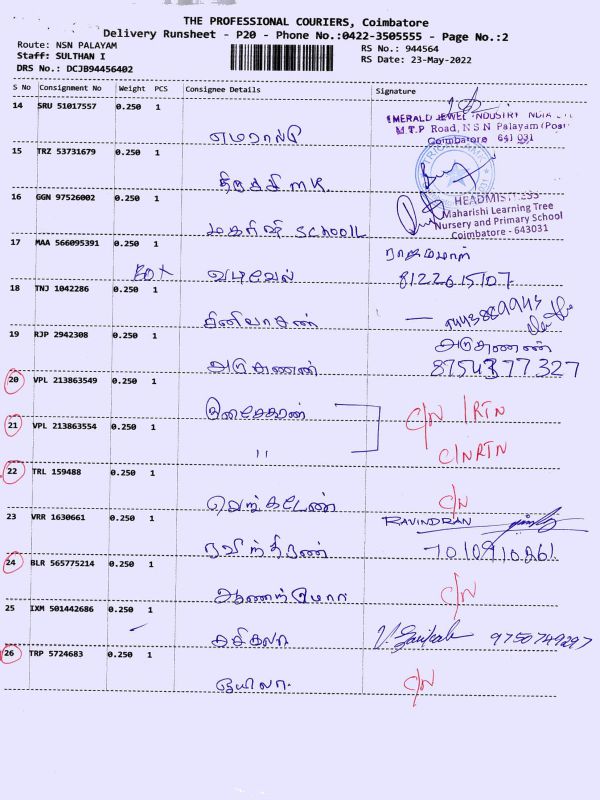 THE PROFESSIONAL COURIERS, Coimbatore
Delivery Runsheet - P20 - Phone No.:0422-3505555 - Page No.:2
Route: NSN PALAYAM
RS No.: 944564
Staff: SULTHAN I
RS Date: 23-May-2022
DRS No.: DCJB94456402
S No Consignment No Weight PCS Consignee Details Signature
14 SRU 51017557 0.250 1
EMERALD JEWEL INDUSTRY INDIA
M.T.P Road, N.S N Palayam (Post)
Coimbatore 641 031
15 TRZ 53731679 0.250 1
திருச்சி MK
16 GGN 97526002 0.250 1
HEADMISTRESS
Maharishi Learning Tree
Nursery and Primary School
Coimbatore - 643031
மகரிஷி SCHOOLL
17 MAA 566095391 0.250 1
BOX வடிவேல் 8122615107
18 TNJ 1042286 0.250 1
சீனிவாசன்
19 RJP 2942308 0.250 1
அருணன் 8754377327
20 VPL 213863549 0.250 1
C/N /RTN
21 VPL 213863554 0.250 1
" C/N RTN
22 TRL 159488 0.250 1
C/N
23 VRR 1630661 0.250 1 RAVINDRAN
ரவிந்திரன் 7010910861
24 BLR 565775214 0.250 1
C/N
25 IXM 501442686 0.250 1
சசிகலா V. Sasikala 9750749297
26 TRP 5724683 0.250 1
C/N